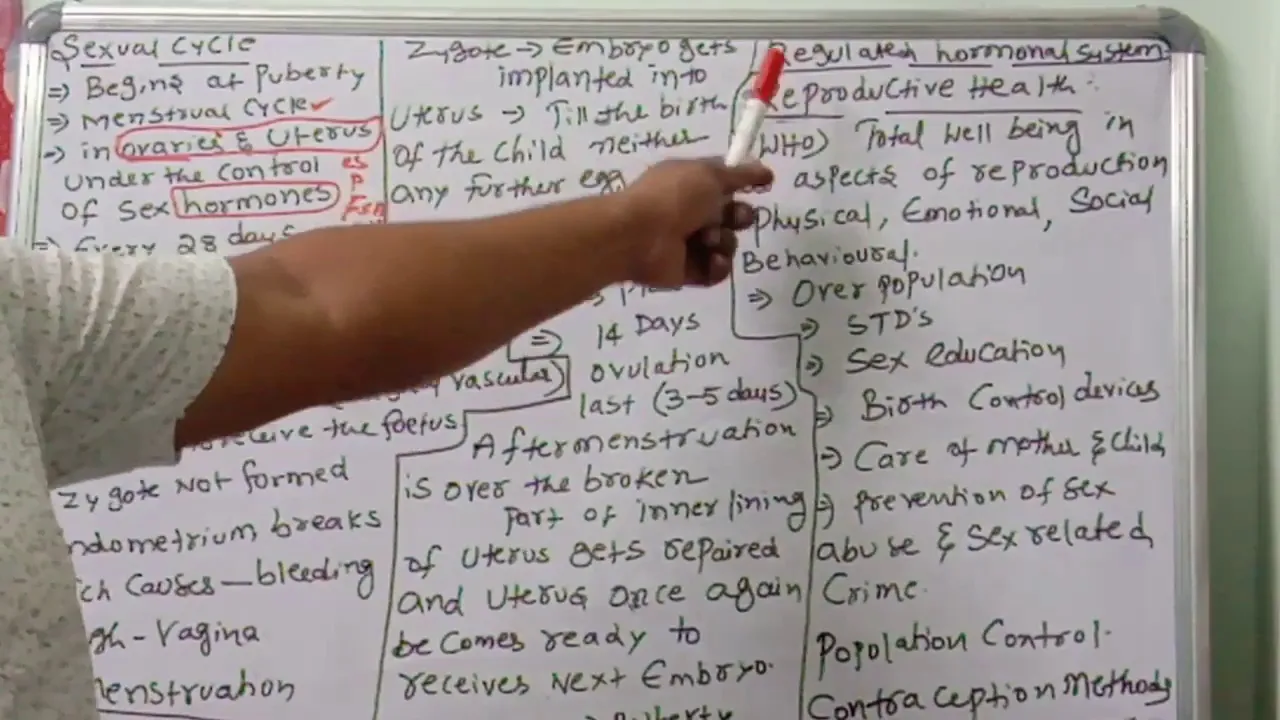 Sexual Cycle
⇒ Begins at Puberty
⇒ Menstrual Cycle ✓
→ in ovaries & Uterus
under the control es
of Sex hormones P
Fsh
⇒ Every 28 days
vascular)
receive the foetus
Zygote Not formed
ndometrium breaks
ch causes — bleeding
gh - Vagina
enstruation
Zygote → Embryo gets
implanted into
Uterus → Till the birth
of the child neither
any further egg
⇒ 14 Days
ovulation
last (3-5 days)
After menstruation
is over the broken
Part of inner lining
of Uterus gets repaired
and Uterus once again
becomes ready to
receives Next Embryo.
Puberty
Regulated hormonal System
Reproductive Health :
(WHO) Total Well being in
aspects of reproduction
Physical, Emotional, Social
Behavioural.
⇒ Over Population
⇒ STD's
⇒ Sex education
⇒ Birth Control devices
⇒ Care of Mother & child
⇒ Prevention of Sex
abuse & Sex related
Crime.
Popolation Control.
Contraception Methods